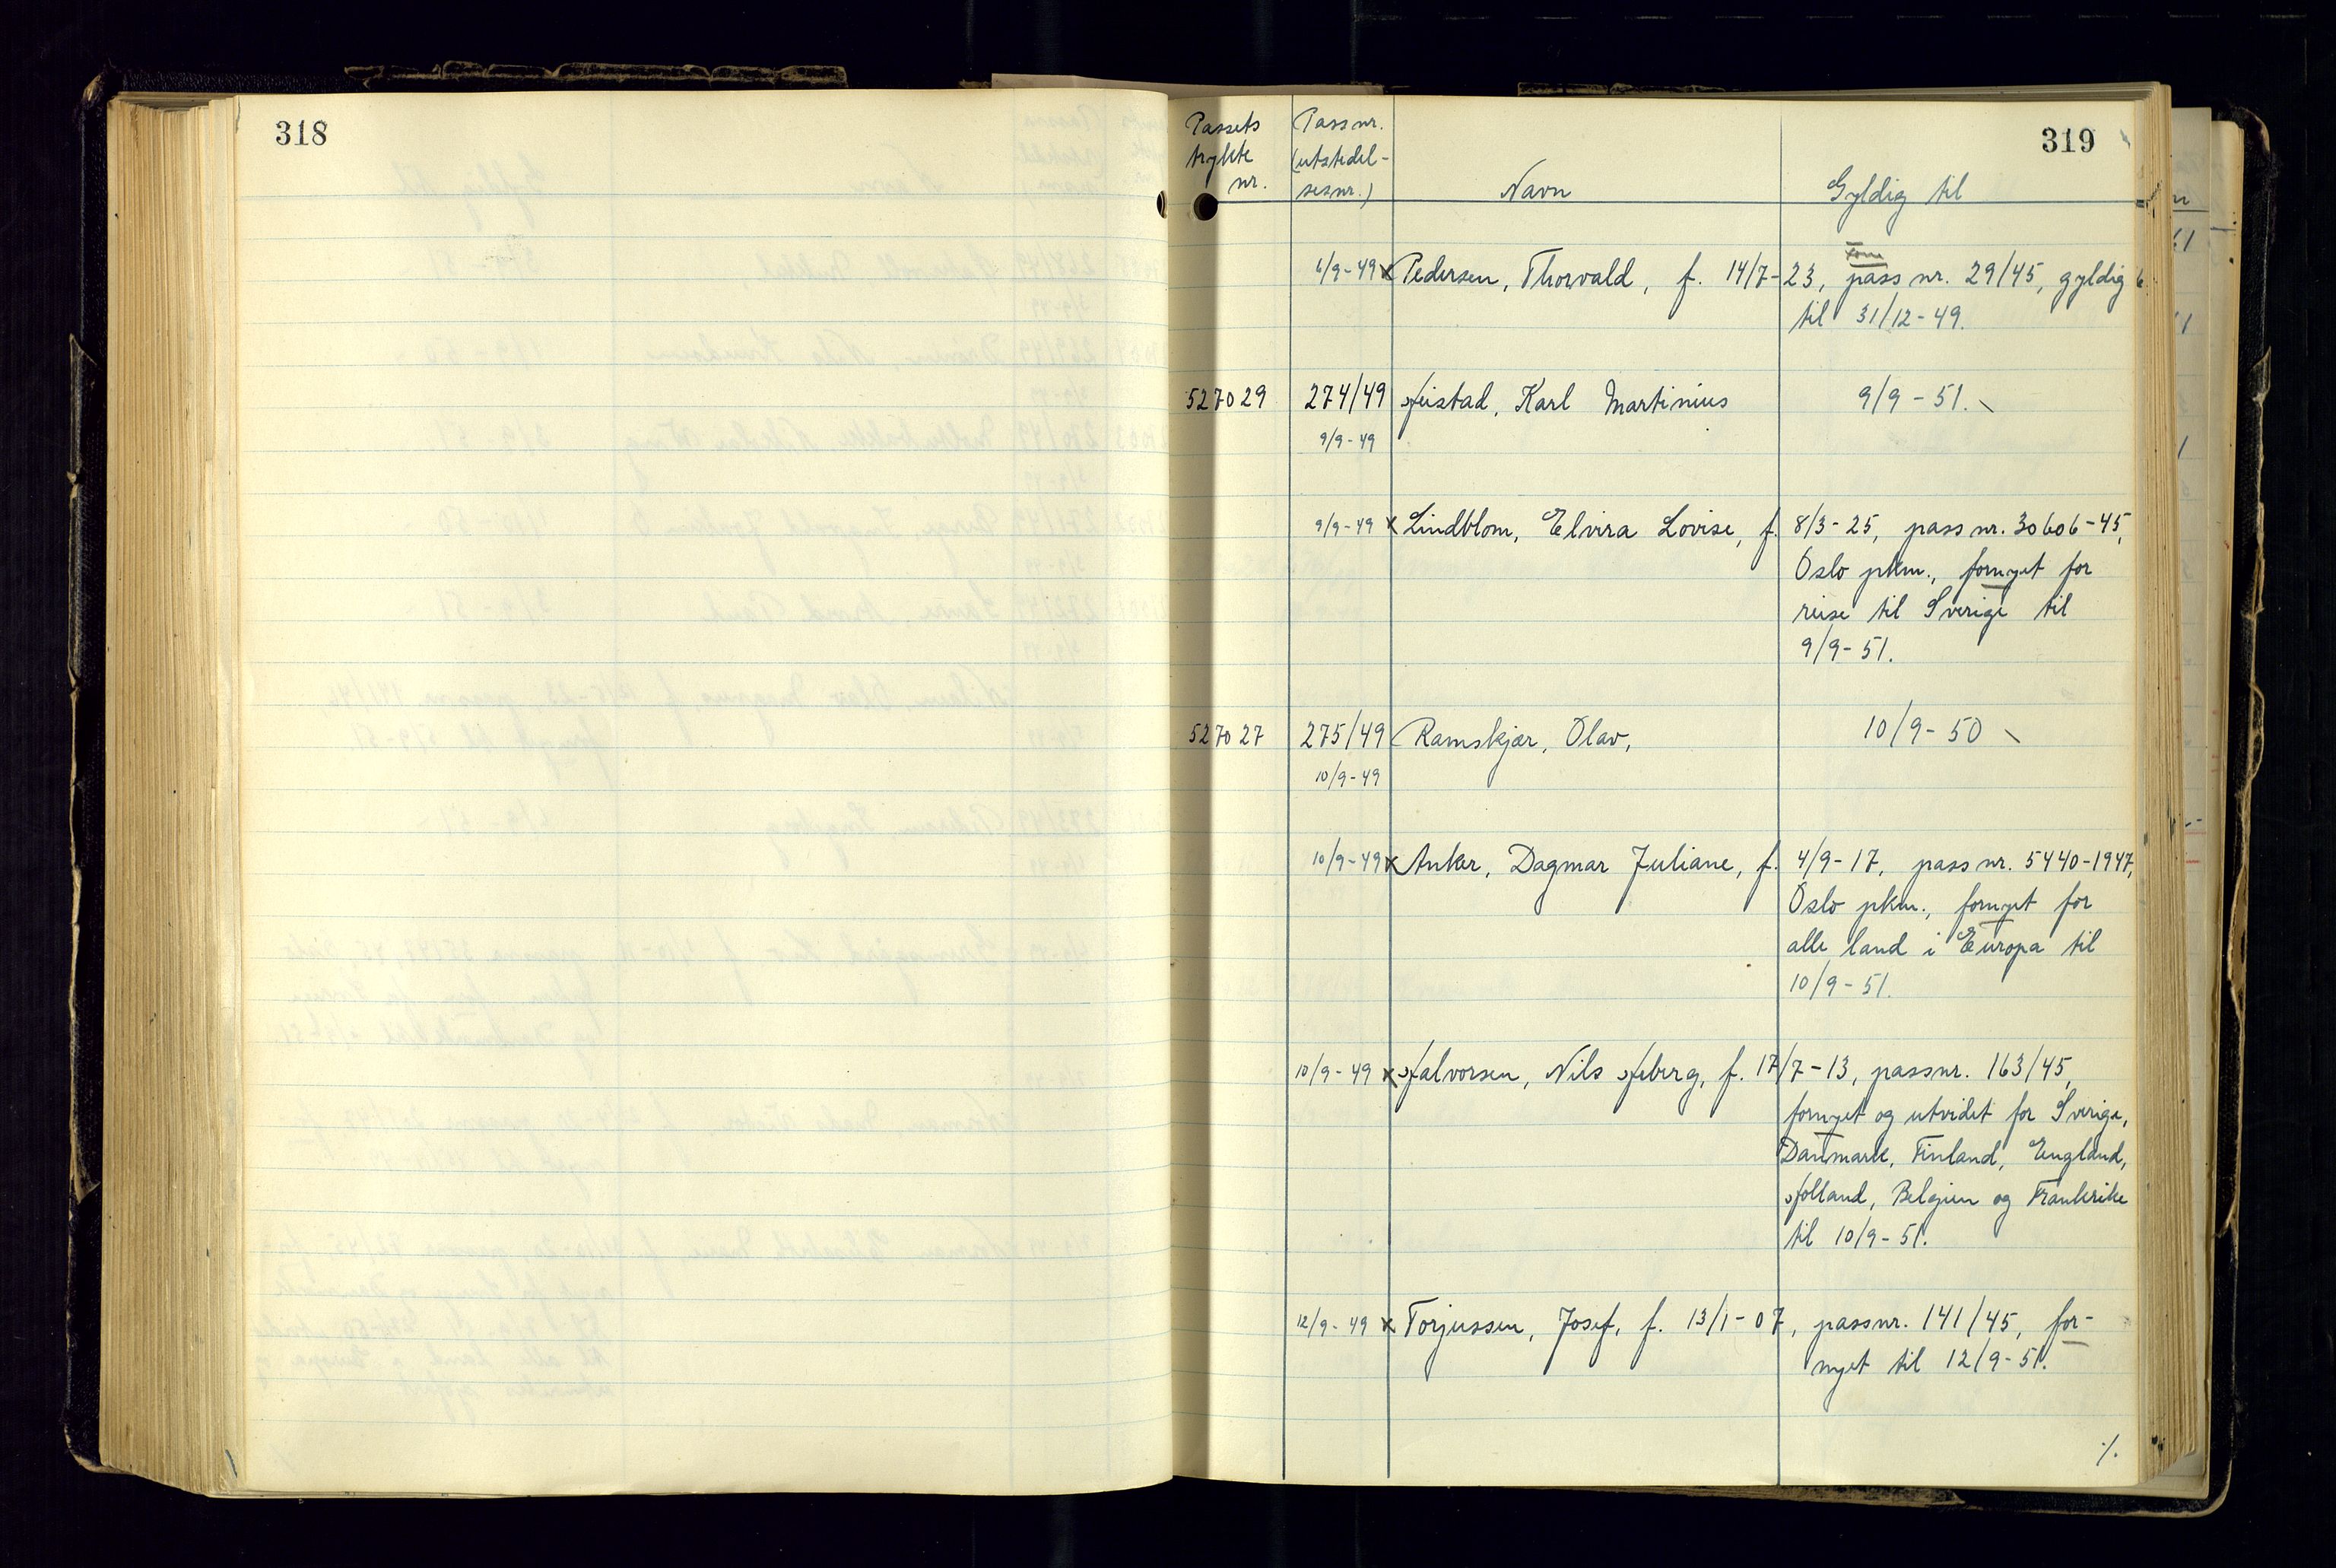 318
319
Passets Passnr.
trykte (utstedel-
nr. sesnr.) Navn Gyldig til
6/9-49 x Pedersen, Thorvald, f. 14/7-23, pass nr. 29/45, gyldig
til 31/12-49.
527029 274/49 Heistad, Karl Martinius 9/9-51.
9/9-49
9/9-49 x Lindblom, Elvira Lovise, f. 8/3-25, pass nr. 30606-45,
Oslo pkm., fornyet for
reise til Sverige til
9/9-51.
527027 275/49 Ramskjær, Olav, 10/9-50
10/9-49
10/9-49 x Anker, Dagmar Juliane, f. 4/9-17, pass nr. 5440-1947,
Oslo pkm., fornyet for
alle land i Europa til
10/9-51.
10/9-49 x Halvorsen, Nils Heberg, f. 17/7-13, passnr. 163/45,
fornyet og utvidet for Sverige,
Danmark, Finland, England,
Holland, Belgien og Frankrike
til 10/9-51.
12/9-49 x Torjussen, Josef, f. 13/1-07, passnr. 141/45, for-
nyet til 12/9-51.
./.